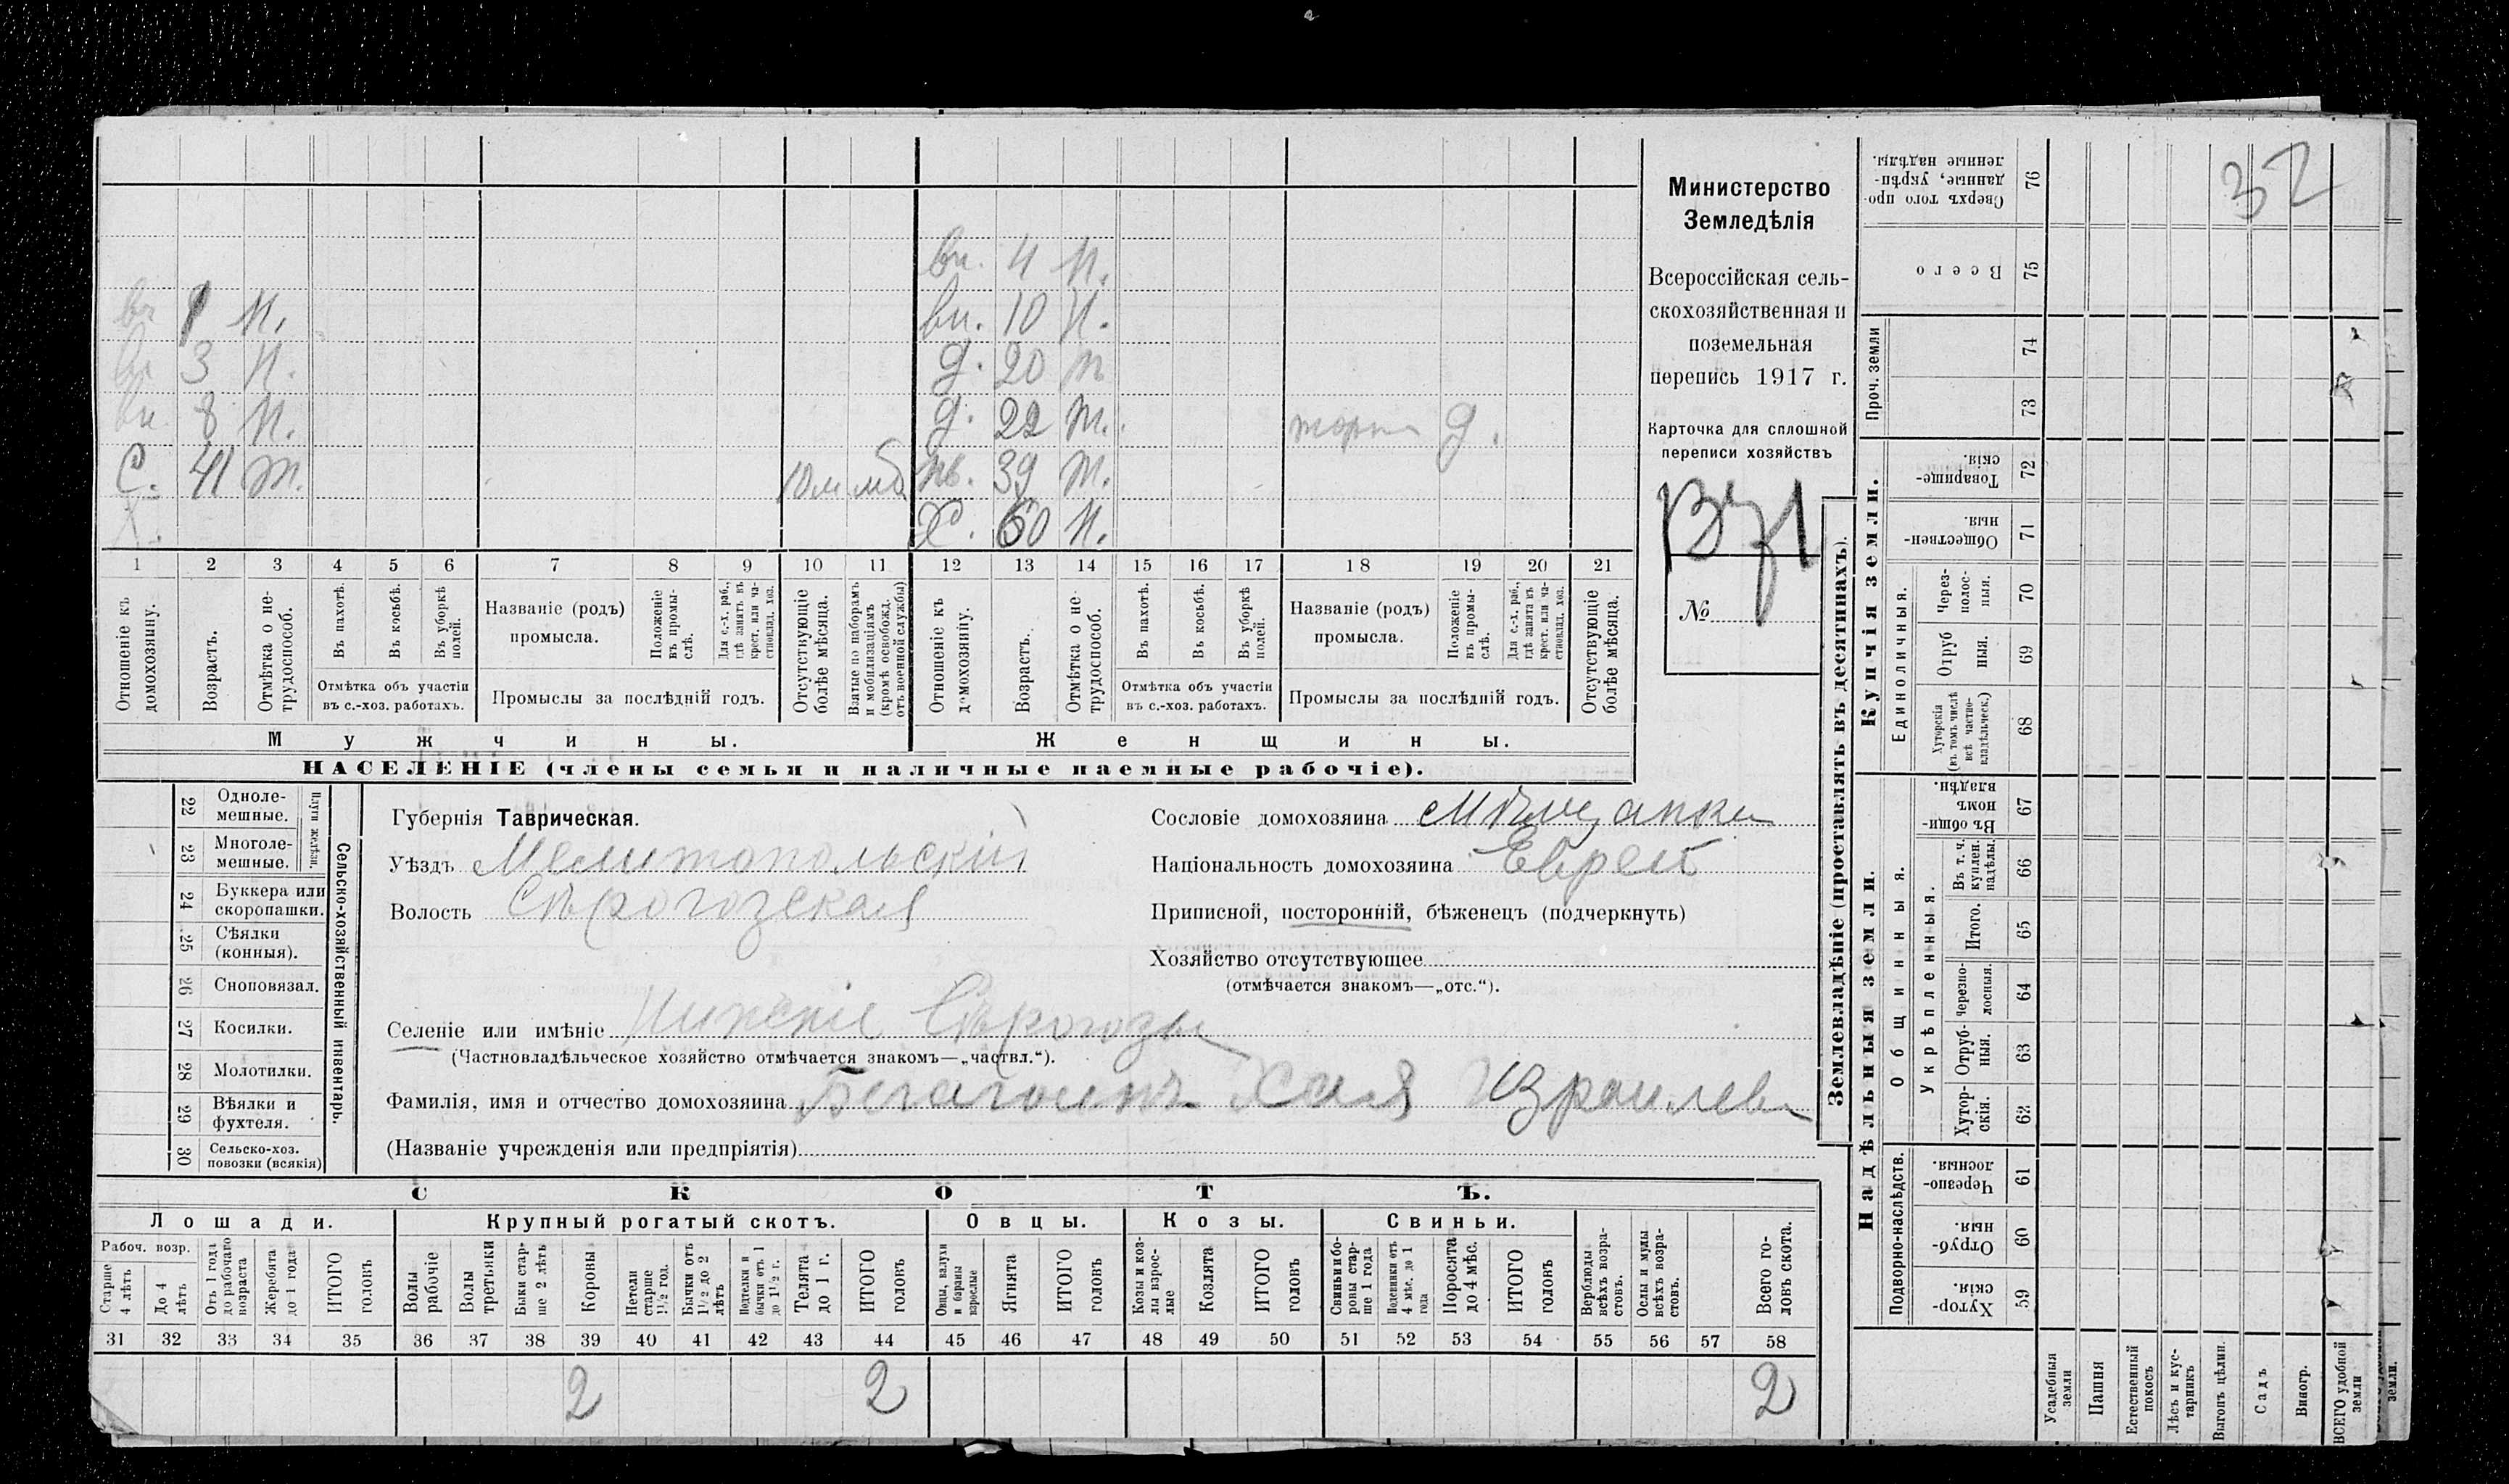 32
вн. 4 Н.
вн 1 Н. вн. 10 Н.
вн 3 Н. д. 20 т
вн. 8 Н. д. 22 т. д.
С. 41 т. 10 м мб. нв. 39 т.
Х. Х. 60 Н.
1 2 3 4 5 6 7 8 9 10 11 12 13 14 15 16 17 18 19 20 21
Отношеніе къ домохозяину.
Возрастъ.
Отмѣтка о не-трудоспособ.
Въ пахотѣ.
Въ косьбѣ.
Въ уборкѣ полей.
Отмѣтка объ участіи
въ с.-хоз. работахъ.
Названіе (родъ)
промысла.
Положеніе въ промы-слѣ.
Для с.-х. раб., гдѣ занятъ въ крест. или ча-стновлад. хоз.
Промыслы за послѣдній годъ.
Отсутствующіе болѣе мѣсяца.
Взятые по наборамъ и мобилизаціямъ (кромѣ освобожд. отъ военной службы)
Отношеніе къ домохозяину.
Возрастъ.
Отмѣтка о не-трудоспособ.
Въ пахотѣ.
Въ косьбѣ.
Въ уборкѣ полей.
Отмѣтка объ участіи
въ с.-хоз. работахъ.
Названіе (родъ)
промысла.
Положеніе въ промы-слѣ.
Для с.-х. раб., гдѣ занятъ въ крест. или ча-стновлад. хоз.
Промыслы за послѣдній годъ.
Отсутствующіе болѣе мѣсяца.
Мужчины. Женщины.
НАСЕЛЕНІЕ (члены семьи и наличные наемные рабочіе).
Министерство
Земледѣлія
Всероссійская сель-
скохозяйственная и
поземельная
перепись 1917 г.
Карточка для сплошной
переписи хозяйствъ
№
Сельско-хозяйственный инвентарь.
Плуги желѣзн.
22 Одноле-мешные.
23 Многоле-мешные.
24 Буккера или скоропашки.
25 Сѣялки (конныя).
26 Сноповязал.
27 Косилки.
28 Молотилки.
29 Вѣялки и фухтеля.
30 Сельско-хоз. повозки (всякія)
Губернія Таврическая.
Уѣздъ Мелитопольскій
Волость Сѣрогозская
Селеніе или имѣніе Нижніе Сѣрогозы
(Частновладѣльческое хозяйство отмѣчается знакомъ—„частвл.“).
Фамилія, имя и отчество домохозяина Хая Израилева
(Названіе учрежденія или предпріятія)
Сословіе домохозяина Мѣщанка
Національность домохозяина Еврей
Приписной, посторонній, бѣженецъ (подчеркнуть)
Хозяйство отсутствующее
(отмѣчается знакомъ—„отс.“).
СКОТЪ.
Лошади. Крупный рогатый скотъ. Овцы. Козы. Свиньи.
Рабоч. возр.
Старше 4 лѣтъ
До 4 лѣтъ
Отъ 1 года до рабочаго возраста
Жеребята до 1 года
ИТОГО головъ
Волы рабочіе
Волы третьяки
Быки стар-ше 2 лѣтъ
Коровы
Нетели старше 1½ год.
Бычки отъ 1½ до 2 лѣтъ
Подтелки и бычки отъ 1 до 1½ г.
Телята до 1 г.
ИТОГО головъ
Овцы, валухи и бараны взрослые
Ягнята
ИТОГО головъ
Козы и коз-лы взрос-лые
Козлята
ИТОГО головъ
Свиньи и бо-ровы стар-ше 1 года
Подсвинки отъ 4 мѣс. до 1 года
Поросята до 4 мѣс.
ИТОГО головъ
Верблюды всѣхъ возра-стовъ.
Ослы и мулы всѣхъ возра-стовъ.
Всего го-ловъ скота.
31 32 33 34 35 36 37 38 39 40 41 42 43 44 45 46 47 48 49 50 51 52 53 54 55 56 57 58
2 2 2
Землевладѣніе (проставлять въ десятинахъ).
Надѣльныя земли. Купчія земли. Проч. земли
Подворно-наслѣдств.
Общинныя.
Укрѣпленныя.
Единоличныя.
Сверхъ того про-данные, укрѣп-ленные надѣлы. 76
Всего 75
74
73
Товарище-скія. 72
Обществен-ныя. 71
Через-полос-ныя. 70
Отруб-ныя. 69
Хуторскія (въ томъ числѣ всѣ частно-владѣльческ.) 68
Въ общин-номъ владѣн. 67
Въ т. ч. куплен. надѣлы. 66
Итого. 65
Черезпо-лосныя. 64
Отруб-ныя. 63
Хутор-скія. 62
Черезпо-лосныя. 61
Отруб-ныя. 60
Хутор-скія. 59
Усадебныя земли
Пашня
Естественный покосъ
Лѣсъ и кус-тарникъ
Выгонъ цѣлин.
Садъ
Виногр.
ВСЕГО удобной земли
земли.